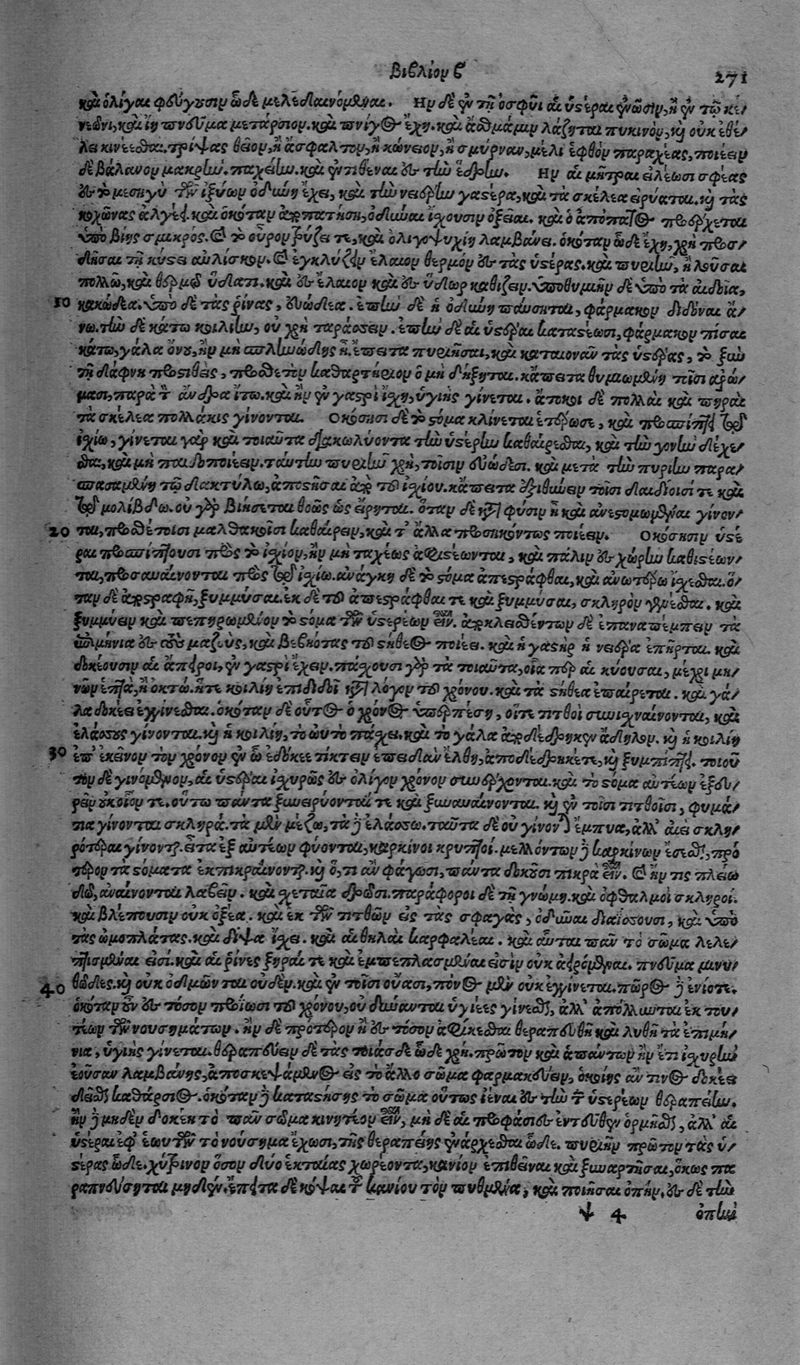 Βιβλίον β 271
καὶ ὀλίγαι φεύγουσιν ὧδε μελεδαινόμεναι. Ην δὲ ἐν τῇ ὀσφύϊ αἱ ὑστέραι ἐνῶσιν, ἢ ἐν τῷ κε/
νεῶνι, καὶ ἢν πνεῦμα μετάρσιον. καὶ πνίγος ἔχῃ. καὶ ἄσθμα μιν λάζηται πυκινὸν, καὶ οὐκ ἐθέ/
λει κινέεσθαι. τρίψας θεῖον, ἢ ἄσφαλτον, ἢ κώνειον, ἢ σμύρναν, μέλι ἑφθὸν παραχέας, ποιέειν
δὲ βάλανον μακρὴν. παχέην. καὶ ἐντιθέναι ἐς τὴν ἕδρην. Ην αἱ μῆτραι εἰλέωσι σφέας
ἐς τὸ μεσηγὺ τῶν ἰξύων ὀδύνη ἔχει, καὶ τὴν νείαιρην γαστέρα, καὶ τὰ σκέλεα εἰρύαται. καὶ τὰς
κοχώνας ἀλγέει. καὶ ὁκόταν ἀποπατήσῃ, ὀδύναι ἴσχουσιν ὀξεῖαι. καὶ ὁ ἀπόπατος προέρχεται
ὑπὸ βίης σμικρός. καὶ τὸ οὖρον στύζει τε, καὶ ὀλιγοψυχίη λαμβάνει. ὁκόταν ὧδε ἔχῃ, χρὴ προσ/
δῆσαι τῇ κύστει αὐλίσκον. καὶ ἐγκλύζειν ἔλαιον θερμὸν ἐς τὰς ὑστέρας. καὶ πυριῆν, ἢ λοῦσαι
πολλῷ, καὶ θερμῷ ὕδατι. καὶ ἐς ἔλαιον καὶ ἐς ὕδωρ καθίζειν. ὑποθυμιῆν δὲ ὑπὸ τὰ αἰδοῖα,
10 κακώδεα. ὑπὸ δὲ τὰς ῥῖνας, εὐώδεα. ἐπὴν δὲ ἡ ὀδύνη παύσηται, φάρμακον διδόναι ἄ/
νω. τὴν δὲ κάτω κοιλίην, οὐ χρὴ ταράσσειν. ἐπὴν δὲ αἱ ὑστέραι καταστέωσι, φάρμακον πῖσαι
κάτω, γάλα ὄνου, ἢν μὴ σπληνώδης ᾖ. ἔπειτα πυριῆσαι, καὶ καταιονᾶν τὰς ὑστέρας, τὸ ξὺν
τῇ δάφνῃ προστιθεὶς, προσθετὸν καθαρτήριον ὃ μὴ δήξηται. κἄπειτα θυμιωμένη πᾶσι ἀρώ/
μασι, παρὰ τὸν ἄνδρα ἴτω. καὶ ἢν ἐν γαστρὶ ἴσχῃ, ὑγιὴς γίνεται. ἄτοκοι δὲ πολλαὶ καὶ πηραὶ
τὰ σκέλεα πολλάκις γίνονται. Οκόσῃσι δὲ τὸ στόμα κλίνεται ἑτέρωσε, καὶ προσπίπτει τῷ
ἰσχίῳ, γίνεται γὰρ καὶ τοιαῦτα διακωλύοντα τὴν ὑστέρην καθαίρεσθαι, καὶ τὴν γονὴν δέχε/
σθαι, καὶ μὴ παιδοποιέειν. ταύτην πυριῆν χρὴ, τοῖσιν εὐώδεσι. καὶ μετὰ τὴν πυρίην παρα/
σπασαμένη τῷ δακτύλῳ, ἀποστῆσαι ἀπὸ τοῦ ἰσχίου. κἄπειτα ἐξιθύνειν τοῖσι δαιδίοισί τε καὶ
τῷ μολίβδῳ. οὐ γὰρ βιήσεται θοῶς ὡς εἴρηται. ὅταν δὲ κατὰ φύσιν ᾖ καὶ ἀνεστομωμέναι γίνων/
20 ται, προσθέτοισι μαλθακοῖσι καθαίρειν, καὶ τ' ἄλλα προσηκόντως ποιέειν. Οκόσῃσιν ὑστέ
ραι προσπίπτουσι πρὸς τὸ ἰσχίον, ἢν μὴ ταχέως ἀφιστέωνται, καὶ πάλιν ἐς χώρην καθιστέων/
ται, προσαυαίνονται πρὸς τῷ ἰσχίῳ. ἀνάγκη δὲ τὸ στόμα ἀπεστράφθαι, καὶ ἀνωτέρω ἴσχεσθαι. ὅ/
ταν δὲ ἀποστραφῇ, ξυμμύσαι. ἐκ δὲ τοῦ ἀπεστράφθαι τε καὶ ξυμμῦσαι, σκληρὸν γενέσθαι. καὶ
ξυμμύειν καὶ πεπηρωμένον τὸ στόμα τῶν ὑστέρεων εἶναι. ἀποκλεισθέντων δὲ ἐπαναπέμπειν τὰ
ἐπιμήνια ἐς τοὺς μαζοὺς, καὶ βεβριθότας τοῦ στήθεος ποιέει. καὶ ἡ γαστὴρ ἡ νείαιρα ἐπῆρται. καὶ
δοκέουσιν αἱ ἄπειροι, ἐν γαστρὶ ἔχειν. πάσχουσι γὰρ τὰ τοιαῦτα, οἷα πὲρ αἱ κύουσαι, μέχρι μη/
νῶν ἑπτὰ, ἢ ὀκτώ. ἥ τε κοιλίη ἐπιδιδοῖ κατὰ λόγον τοῦ χρόνου. καὶ τὰ στήθεα ἐπαίρεται. καὶ γά/
λα δοκέει ἐγγίνεσθαι. ὁκόταν δὲ οὗτος ὁ χρόνος ὑπερπέσῃ, οἵ τε τιτθοὶ συνισχναίνονται, καὶ
ἐλάσσους γίνονται. καὶ ἡ κοιλίη, τὸ ὠυτὸ πάσχει. καὶ τὸ γάλα ἀποδέδρηκεν ἄδηλον. καὶ ἡ κοιλίη
30 ἐπ' ἐκεῖνον τὸν χρόνον ἐν ᾧ ἐδόκεε τίκτειν ἐπειδὰν ἔλθῃ, ἀποδέδρηκέ τε, καὶ ξυμπίπτει. τοιού
των δὲ γινομένων, αἱ ὑστέραι ἰσχυρῶς ἐς ὀλίγον χρόνον συνέρχονται. καὶ τὸ στόμα αὐτέων ἐξευ/
ρεῖν οὐκ οἷόν τε. οὕτω πάντα ξυνειρύονταί τε καὶ ξυναυαίνονται. καὶ ἐν τοῖσι τιτθοῖσι, φυμά/
τια γίνονται σκληρὰ. τὰ μὲν μέζω, τὰ δὲ ἐλάσσω. ταῦτα δὲ οὐ γίνονται ἔμπυα, ἀλλ' ἀεὶ σκλη/
ρότεραι γίνονται. εἶτα ἐξ αὐτέων φύονται, καρκίνοι κρυπτοί. μελλόντων δὲ καρκίνων ἔσεσθαι, πρό
τερον τὰ στόματα ἐκπικραίνονται. καὶ ὅ, τι ἂν φάγωσι, πάντα δοκέουσι πικρὰ εἶναι. καὶ ἤν τις πλείω
διδῷ, ἀναίνονται λαβεῖν. καὶ σχέτλια δρῶσι. παράφοροι δὲ τῇ γνώμῃ. καὶ ὀφθαλμοὶ σκληροί.
καὶ βλέπουσιν οὐκ ὀξέα. καὶ ἐκ τῶν τιτθῶν ἐς τὰς σφαγὰς, ὀδύναι διαΐσσουσι, καὶ ὑπὸ
τὰς ὠμοπλάτας. καὶ δίψα ἴσχει. καὶ αἱ θηλαὶ καρφαλέαι. καὶ αὗται πᾶν τὸ σῶμα λελε/
πτυσμέναι εἰσί. καὶ αἱ ῥῖνες ξηραί τε καὶ ἐμπεπλασμέναι εἰσὶν οὐκ αἰρόμεναι. πνεῦμα μινυ/
40 θῶδες. καὶ οὐκ ὀδμῶνται οὐδέν. καὶ ἐν τοῖσι οὔασι, πόνος μὲν οὐκ ἐγγίνεται. πῶρος δὲ ἐνίοτε.
ὁκόταν οὖν ἐς τόσον προΐωσι τοῦ χρόνου, οὐ δύνανται ὑγιέες γίνεσθαι, ἀλλ' ἀπόλλυνται ἐκ του/
τέων τῶν νουσημάτων. ἢν δὲ πρότερον ἢ ἐς τόσον ἀφίκεσθαι θεραπευθῇ καὶ λυθῇ τὰ ἐπιμή/
νια, ὑγιὴς γίνεται. θεραπεύειν δὲ τὰς τοιάσδε ὧδε χρή. πρῶτον καὶ ἁπάντων ἢν ἔτι ἰσχυρὴν
ἐοῦσαν λαμβάνῃς, ἀποσκεψάμενος ἐς τὸ ἄλλο σῶμα φαρμακεύειν, ὁκοίης ἄν τινος δοκέει
δεῖσθαι καθάρσιος. ὁκόταν δὲ καταστήσῃς τὸ σῶμα οὕτως ἰέναι ἐς τὴν τῶν ὑστέρεων θεραπείην.
ἢν δὲ μηδὲν δοκέῃ τὸ πᾶν σῶμα κινητέον εἶναι, μὴ δὲ αἱ προφάσιες ἐντεῦθεν ὁρμῆσθαι, ἀλλ' αἱ
ὑστέραι ἐφ' ἑωυτῶν τὸ νούσημα ἔχωσι, τῆς θεραπείης ἐνάρχεσθαι ὧδε. πυριῆν πρῶτον τὰς ὑ/
στέρας ὧδε. χύτρινον ὅσον δύο ἑκταίας χωρέοντα, κανίον ἐπιθεῖναι καὶ ξυναρτῆσαι, ὅκως πα
ραπνεύσηται μηδέν. ἔπειτα δὲ κόψαι τοῦ κανίου τὸν πυθμένα, καὶ ποιῆσαι ὀπήν. ἐς δὲ τὴν
ψ 4 ὀπὴν